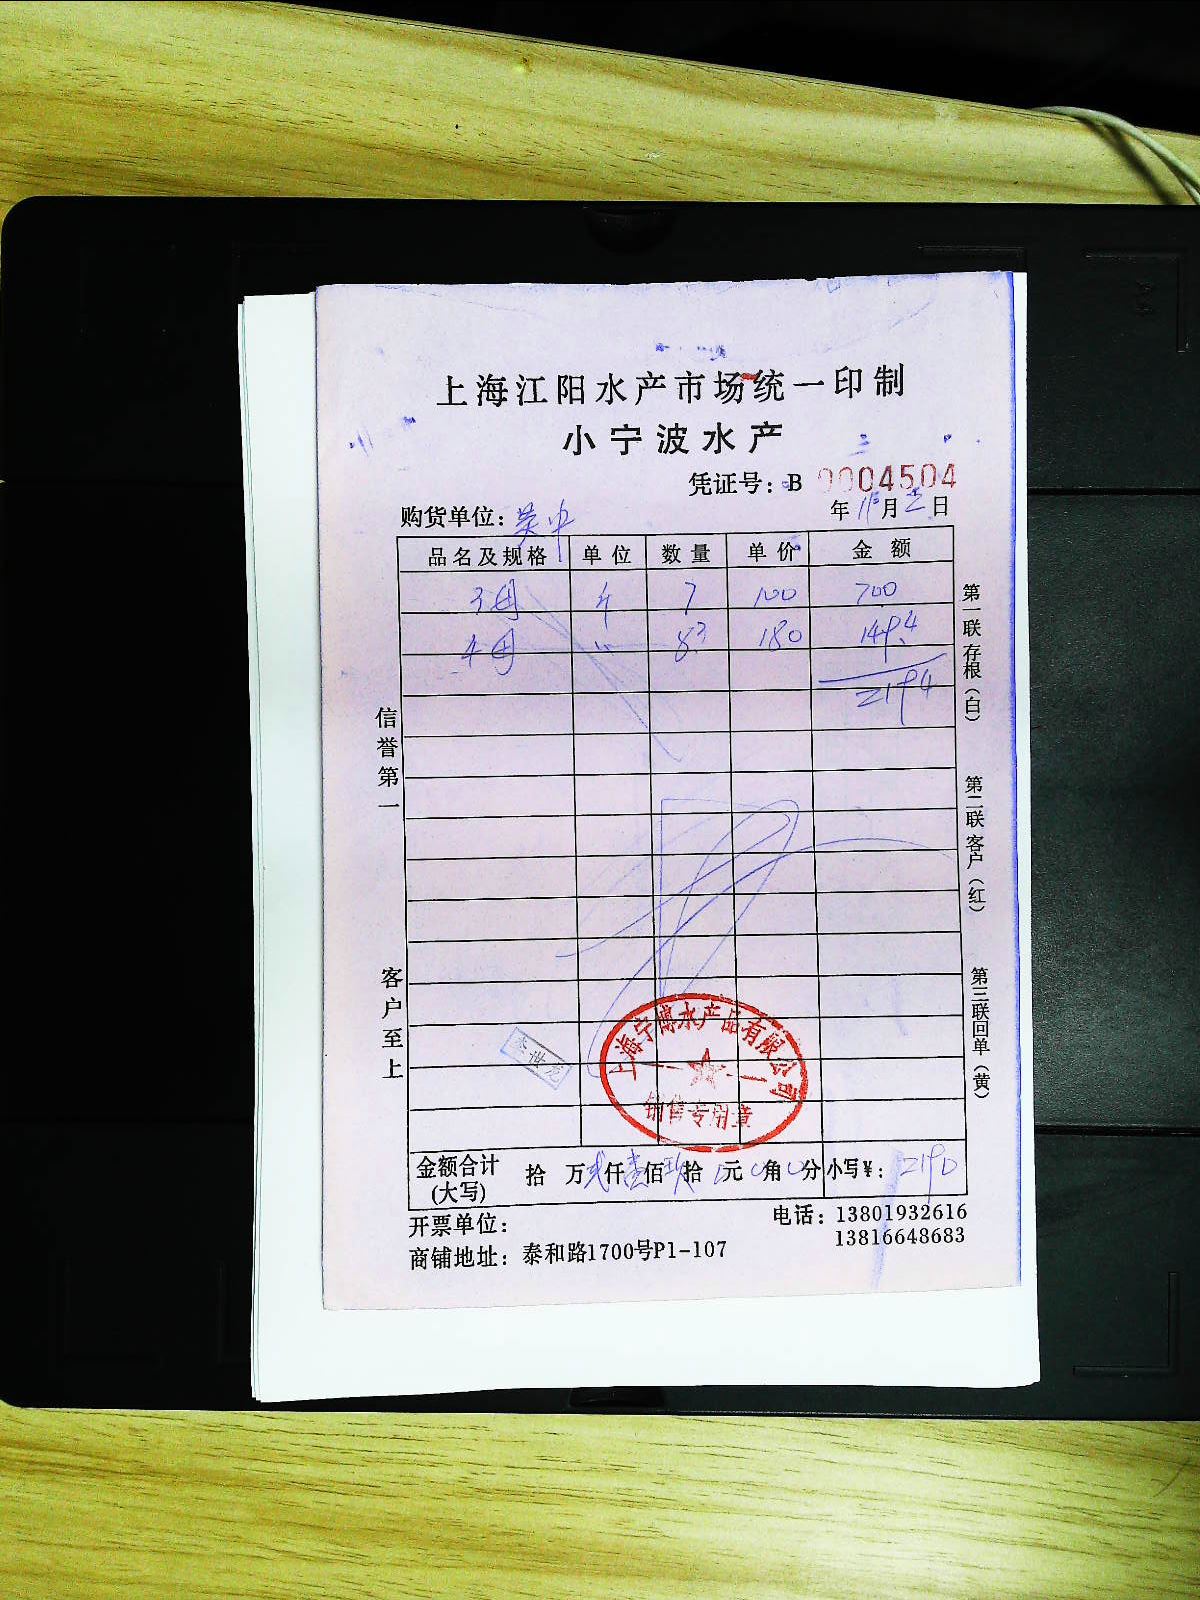 上海江阳水产市场统一印制
小宁波水产
凭证号：B 0004504
购货单位：
年11月2日
品名及规格 单位 数量 单价 金额
3母 斤 7 100 700
4母 〃 8.3 180 1494
2194
信誉第一
客户至上
第一联存根（白）
第二联客户（红）
第三联回单（黄）
上海宁博水产品有限公司
销售专用章
李世龙
金额合计（大写） 拾 万 贰 仟 壹 佰 玖 拾 0 元 0 角 0 分 小写¥： 2190
开票单位：
电话：13801932616
13816648683
商铺地址：泰和路1700号P1-107